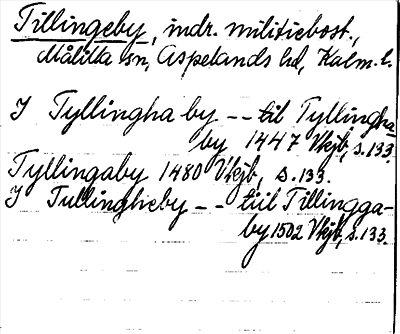 Tillingeby, indr. militiebost.,
Målilla sn, Aspelands hd, Kalm. l.
I Tyllingha by -- til Tyllingha
by 1447 Vkjb, s.133.
Tyllingaby 1480 Vkjb, s.133.
I Tullingheby -- tiil Tillingga-
by 1502 Vkjb, s.133.